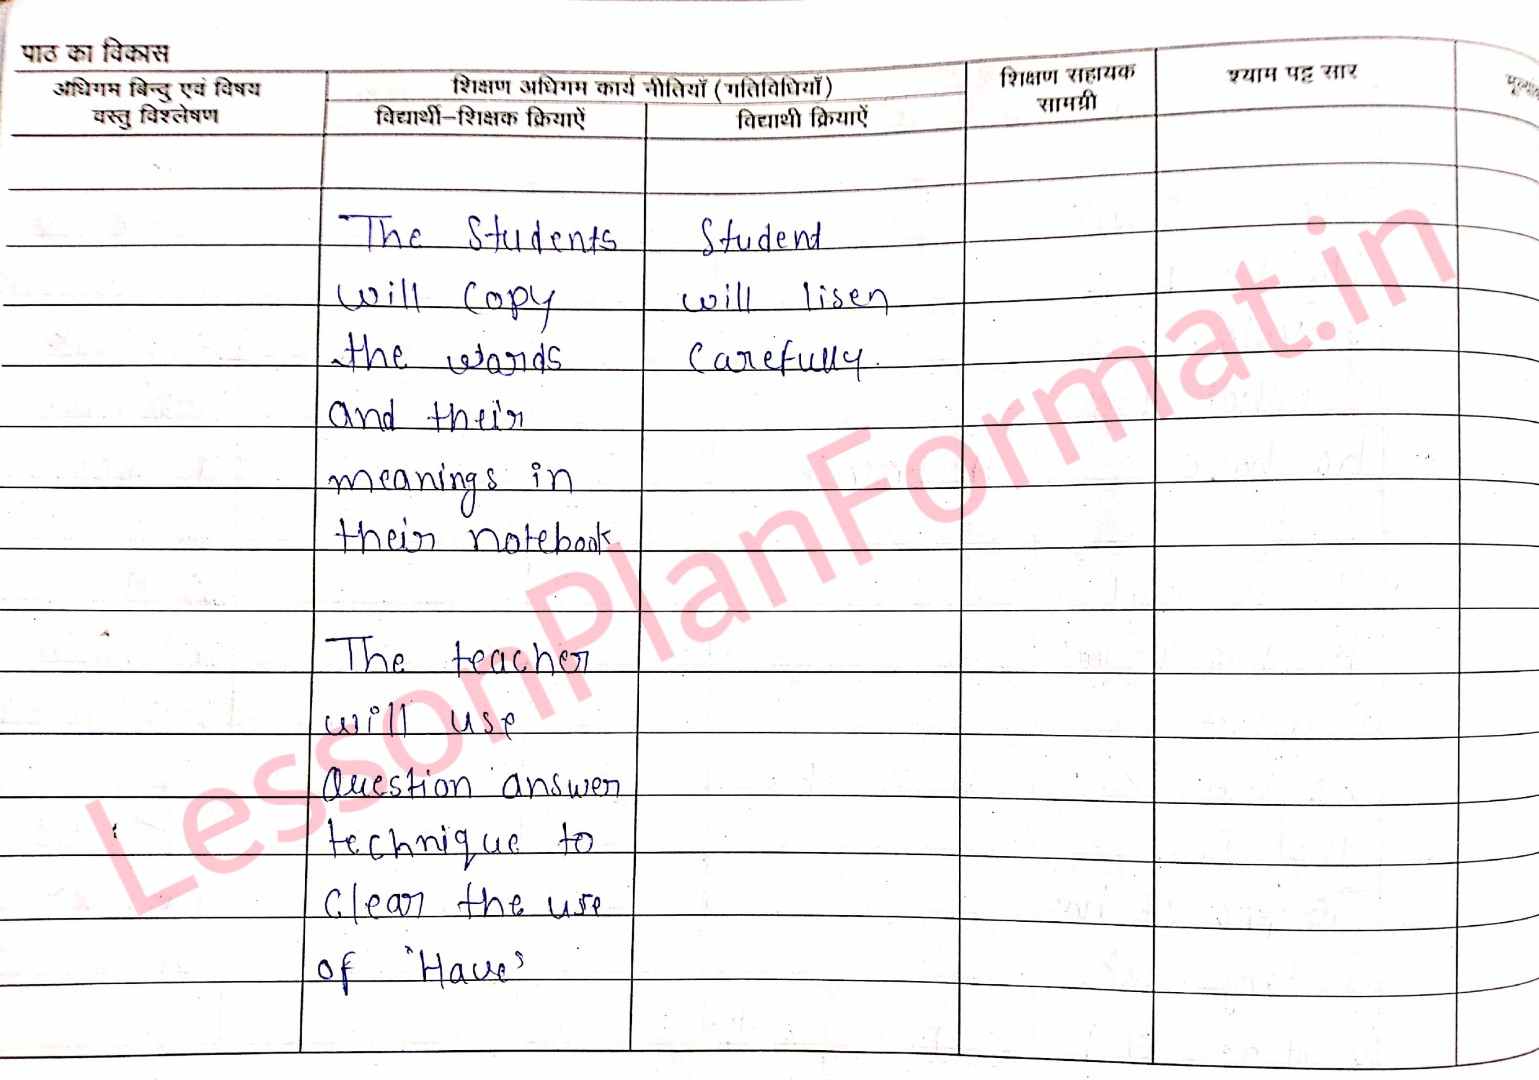 पाठ का विकास
अधिगम बिन्दु एवं विषय
वस्तु विश्लेषण
शिक्षण अधिगम कार्य नीतियाँ (गतिविधियाँ)
विद्यार्थी-शिक्षक क्रियाऐं
विद्यार्थी क्रियाऐं
शिक्षण सहायक
सामग्री
श्याम पट्ट सार
The Students
will copy
the words
and their
meanings in
their notebook
The teacher
will use
Question answer
technique to
clear the use
of 'Have'
Student
will lisen
carefully.
LessonPlanFormat.in